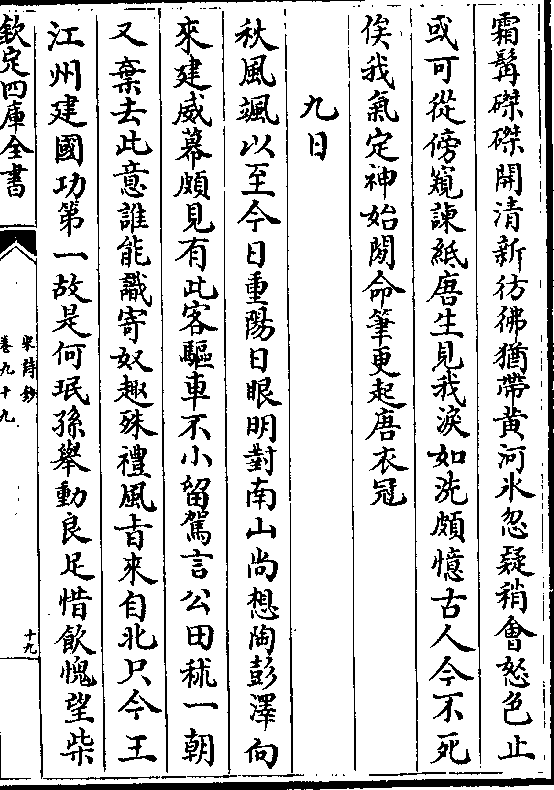 霜髯磔磔開清新彷彿猶帶黄河氷忽疑稍會怒色止
或可從傍窺諫紙唐生見我淚如洗頗憶古人今不死
俟我氣定神始閲命筆更起唐衣冠
九日
秋風颯以至今日重陽日眼明對南山尚想陶彭澤向
來建威幕頗見有此客驅車不小留駕言公田秫一朝
又棄去此意誰能識寄奴趣殊禮風旨來自北只今王
江州建國功第一故是何珉孫舉動良足惜飲愧望柴
欽定四庫全書
宋詩鈔
卷九十九
十九